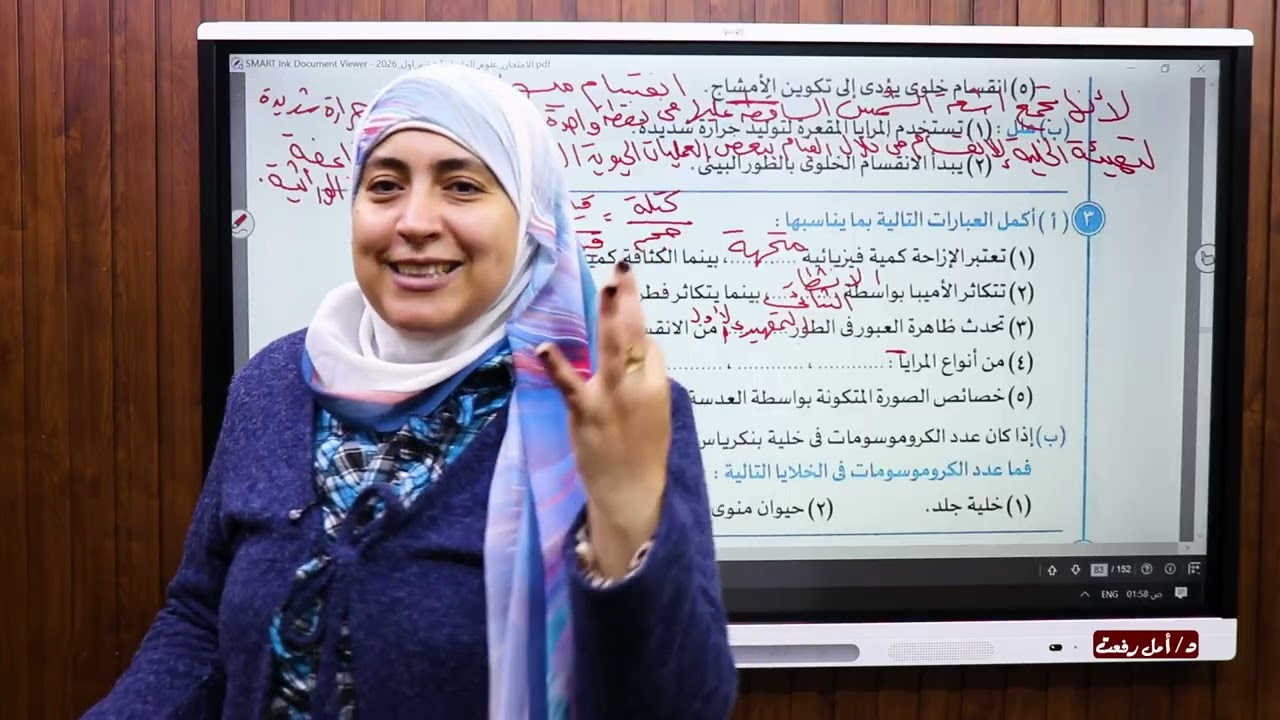 SMART Ink Document Viewer - الامتحان_علوم_ _اول_2026.pdf
(٥) انقسام خلوى يؤدى إلى تكوين الأمشاج. انقسام
لأنها تجمع أشعة الشمس الساقطة عليها فى نقطة واحدة حرارة شديدة
(ب) علل : (١) تستخدم المرايا المقعرة لتوليد حرارة شديدة.
لتهيئة الخلية للانقسام من خلال القيام ببعض العمليات الحيوية
(٢) يبدأ الانقسام الخلوى بالطور البينى. الوراثية.
كتلة
حجم
٣ (أ) أكمل العبارات التالية بما يناسبها :
(١) تعتبر الإزاحة كمية فيزيائية متجهة، بينما الكثافة كمية
(٢) تتكاثر الأميبا بواسطة الانشطار الثنائى بينما يتكاثر فطر
(٣) تحدث ظاهرة العبور فى الطور التمهيدى الأول من الانقس
(٤) من أنواع المرايا : ............ ، ............ ، ............
(٥) خصائص الصورة المتكونة بواسطة العدسة
(ب) إذا كان عدد الكروموسومات فى خلية بنكرياس
فما عدد الكروموسومات فى الخلايا التالية :
(١) خلية جلد. (٢) حيوان منوى
83 / 152
ENG 01:58 ص
د/ أمل رفعت